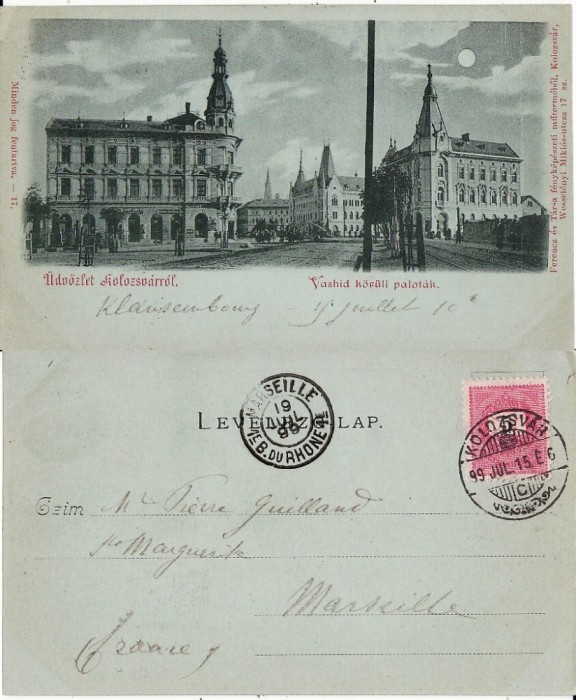 Minden jog fentartva. — 17.
Ferencz és Társa fényképészeti műterméből, Kolozsvár,
Wesselényi Miklós-utcza 17 sz.
Üdvözlet Kolozsvárról.
Vashid körüli paloták.
Klausembourg – 15 juillet 10h
LEVELEZŐ-LAP.
MARSEILLE
19
JUIL
99
B. DU RHONE
KOLOZSVÁR
99 JUL. 15. E. 6
C
5
Czim
Mr Pierre Guilland
Ste Marguerite
Marseille
(France)